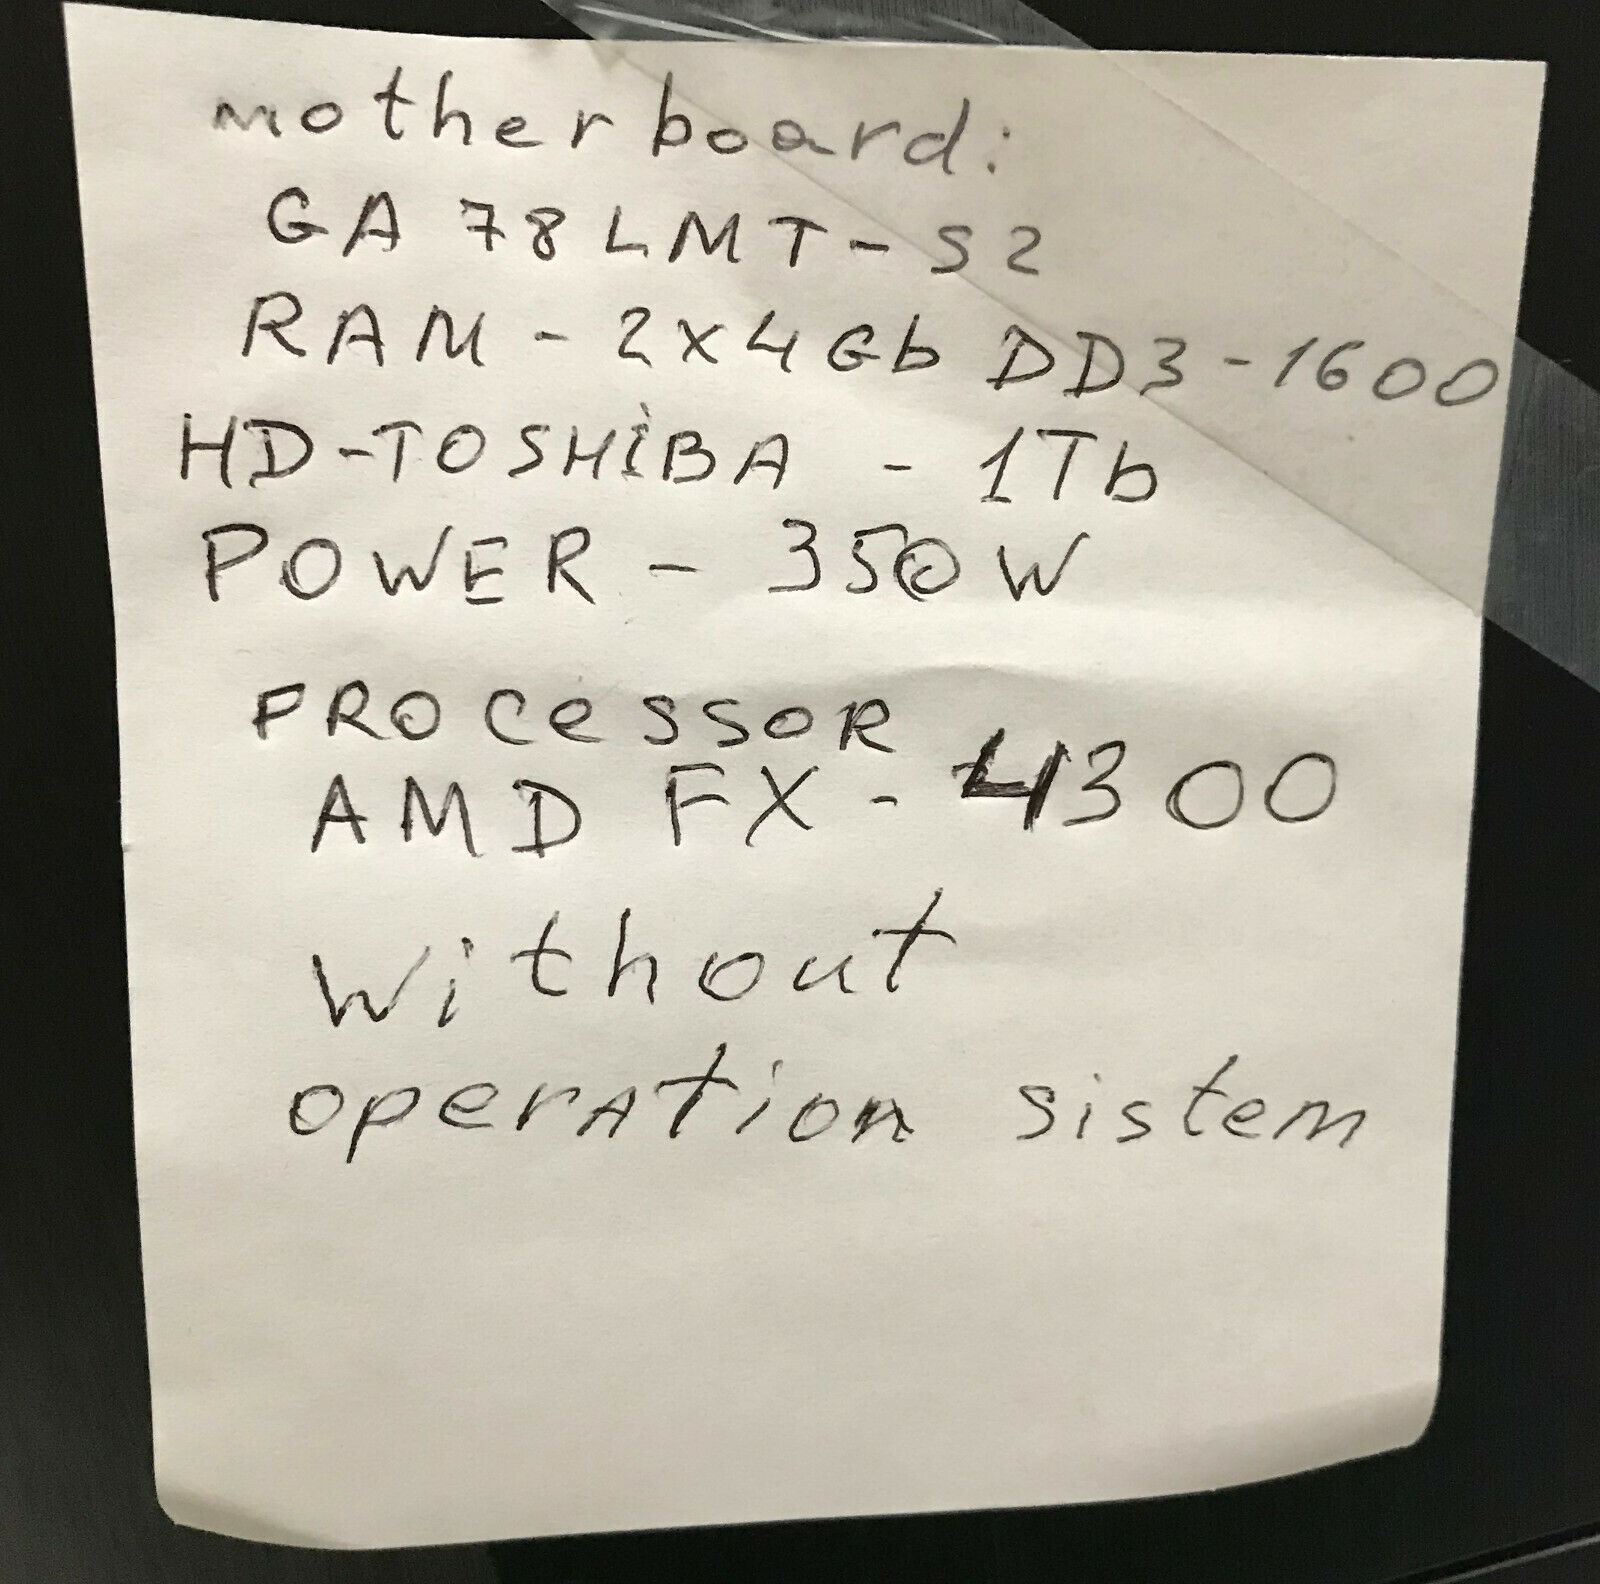 motherboard:
GA 78LMT-S2
RAM - 2x4Gb DD3-1600
HD-TOSHiBA - 1Tb
POWER - 350W
PROCeSSOR
AMD FX - 4300
Without
operation sistem